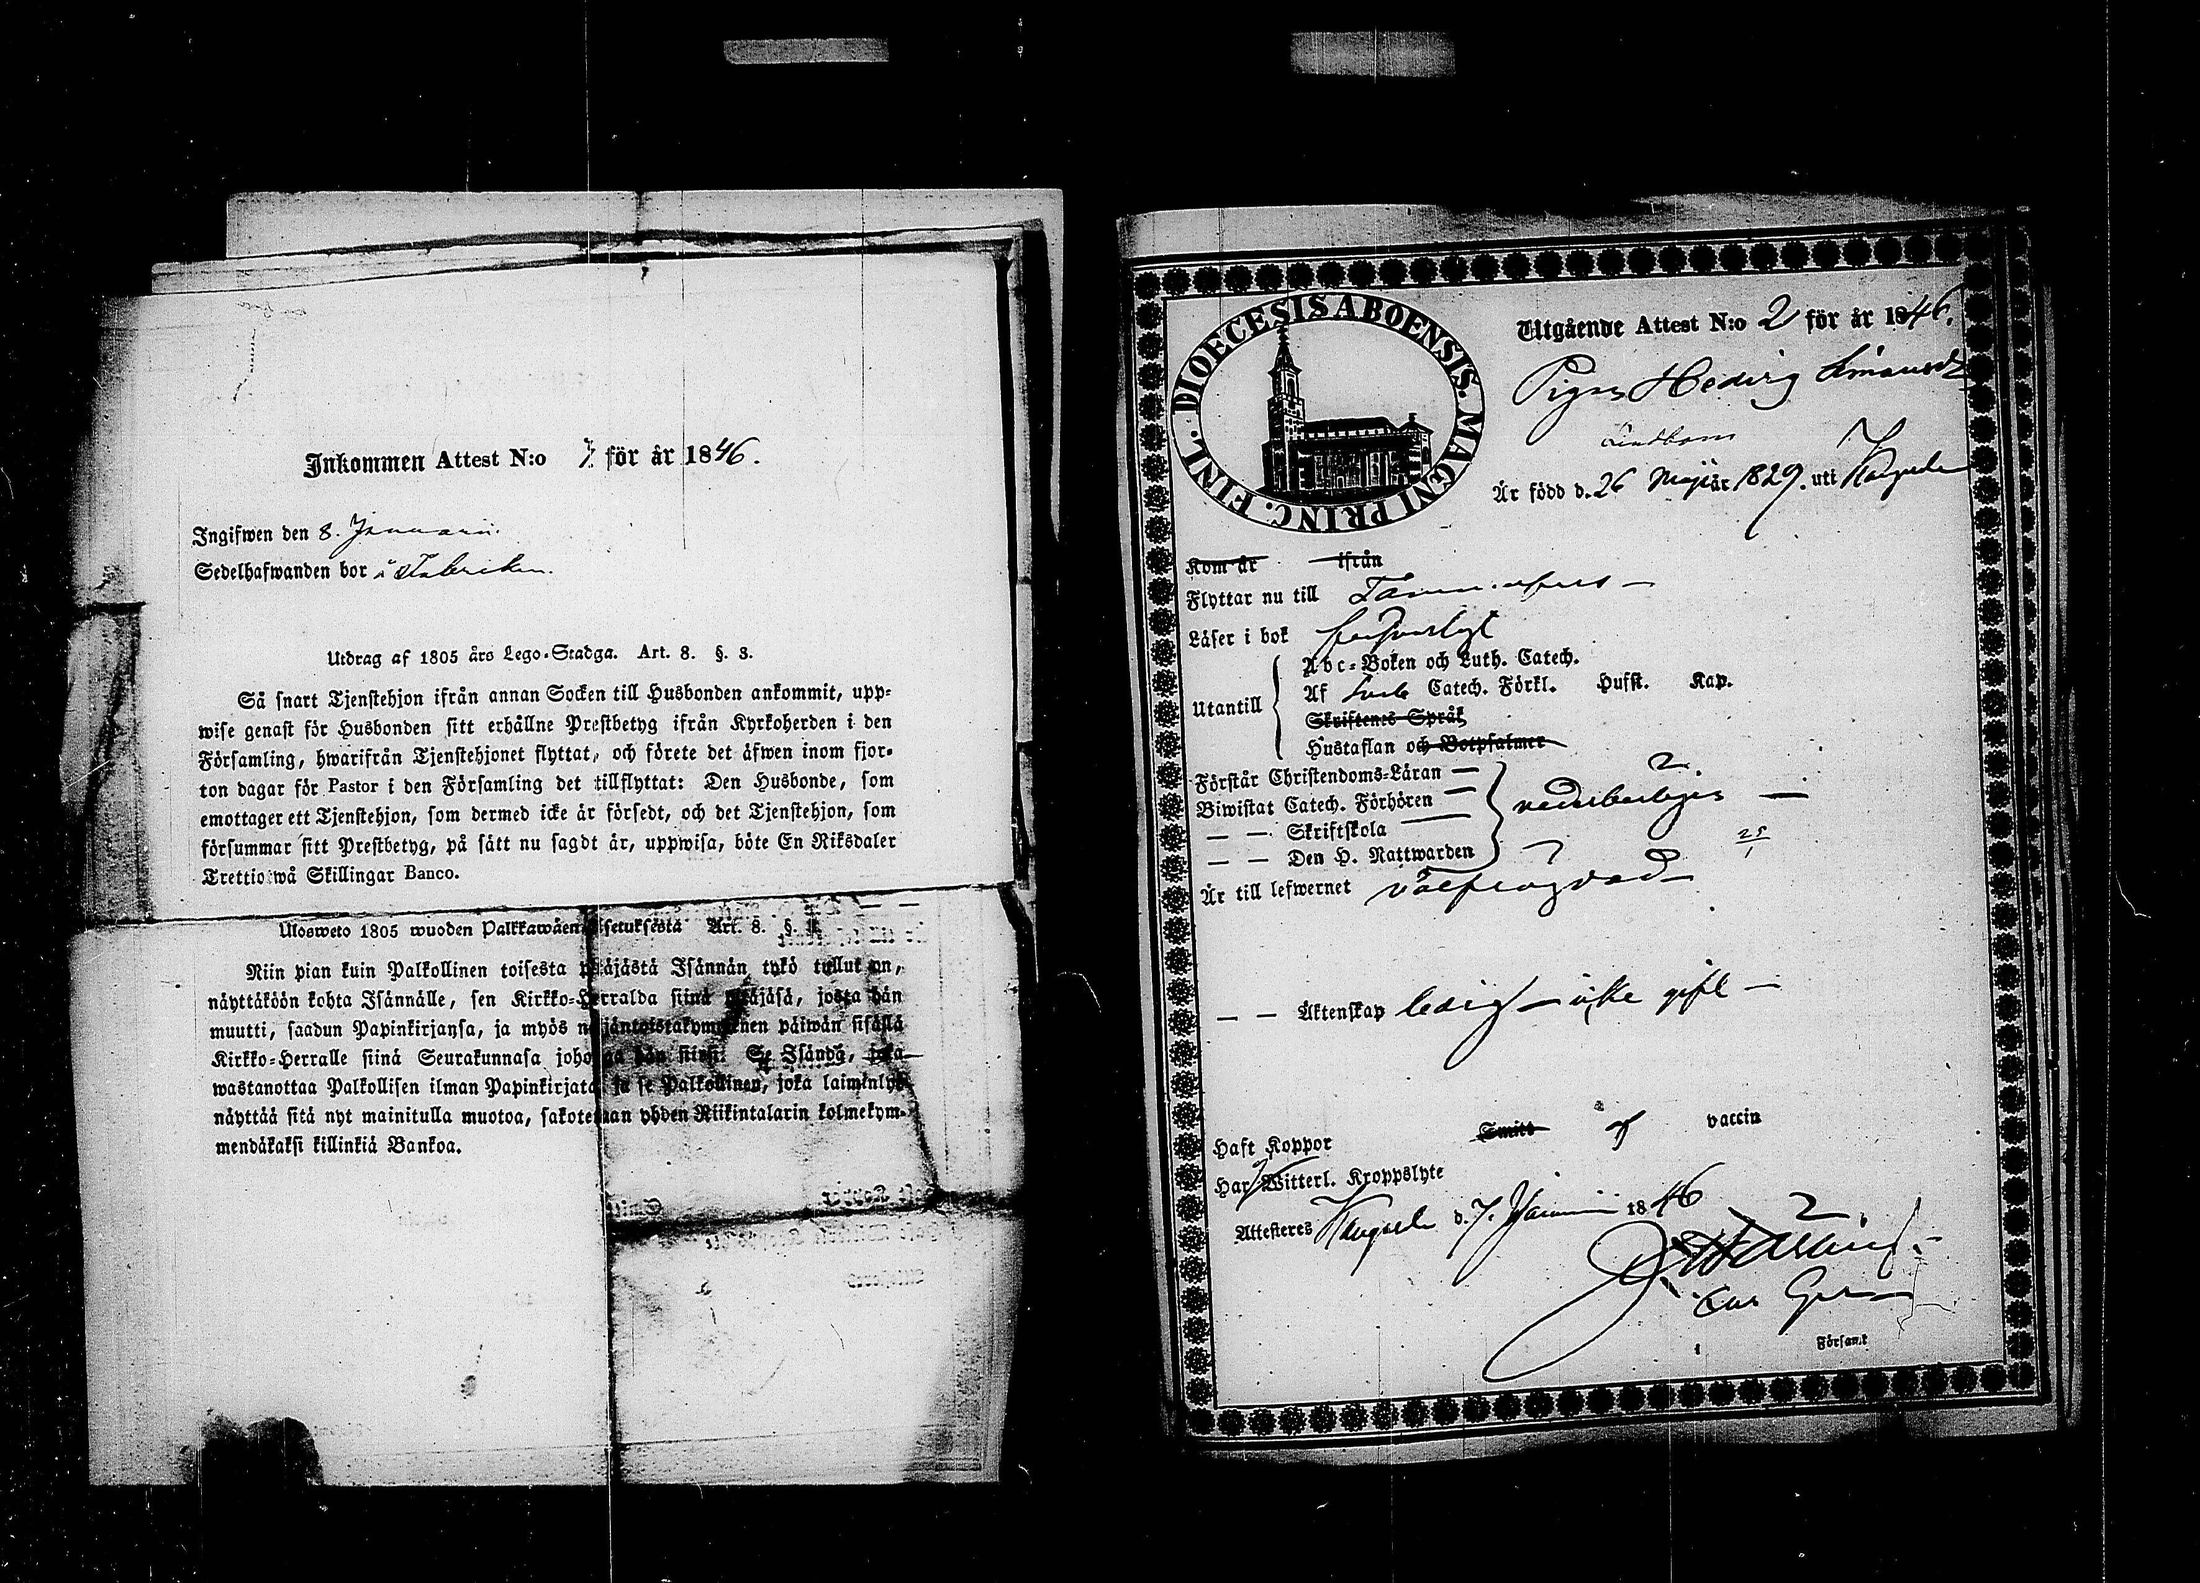 Inkommen Attest N:o 7 för år 1846.
Ingifwen den 8. Januarii.
Sedelhafwanden bor å Fabriken.
Utdrag af 1805 års Lego-Stadga. Art. 8. §. 3.
Så snart Tjenstehjon ifrån annan Socken till Husbonden ankommit, upp-
wise genast för Husbonden sitt erhållne Prestbetyg ifrån Kyrkoherden i den
Församling, hwarifrån Tjenstehjonet flyttat, och förete det äfwen inom fjor-
ton dagar för Pastor i den Församling det tillflyttat: Den Husbonde, som
emottager ett Tjenstehjon, som dermed icke är försedt, och det Tjenstehjon, som
försummar sitt Prestbetyg, på sätt nu sagdt är, uppwisa, böte En Riksdaler
Trettiotwå Skillingar Banco.
Ulosweto 1805 wuoden Palkkawäen Art. 8. §.
Niin pian kuin Palkollinen toisesta pitäjästä Isännän tykö tullut on,
näyttäköön kohta Isännälle, sen Kirkko-Herralda siinä pitäjäsä, josta hän
muutti, saadun Papinkirjansa, ja myös neljäntoistakymmenen päiwän sisällä
Kirkko-Herralle siinä Seurakunnasa johonga hän siirsi: Se Isändä, joka
wastanottaa Palkollisen ilman Papinkirjata ja se Palkollinen, joka laiminlyö
näyttää sitä nyt mainitulla muotoa, sakotetaan yhden Riikintalarin kolmekym-
mendäkaksi killinkiä Bankoa.
DIOECESIS ABOENSIS. MAGNI PRINC. FINL.
Utgående Attest N:o 2 för år 1846.
Pigan Hedvig Simonsdr
Lindbom
Är född d. 26 Maji år 1829. uti Kangasala
Kom år ifrån
Flyttar nu till Tammerfors
Läser i bok försvarligt
Abc-Boken och Luth. Catech.
Utantill
Af Catech. Förkl. Husst. Kap.
Skriftenes Språk
Hustaflan och Botpsalmer
Förstår Christendoms-Läran
Biwistat Catech. Förhören
— — Skriftskola
— — Den H. Nattwarden
Är till lefwernet välfrägdad
— — Äktenskap ledig icke gift
Haft Koppor Smitt af vaccin
Har Witterl. Kroppslyte
Attesteras Kangasala d. 7. Januarii 1846
Församl.